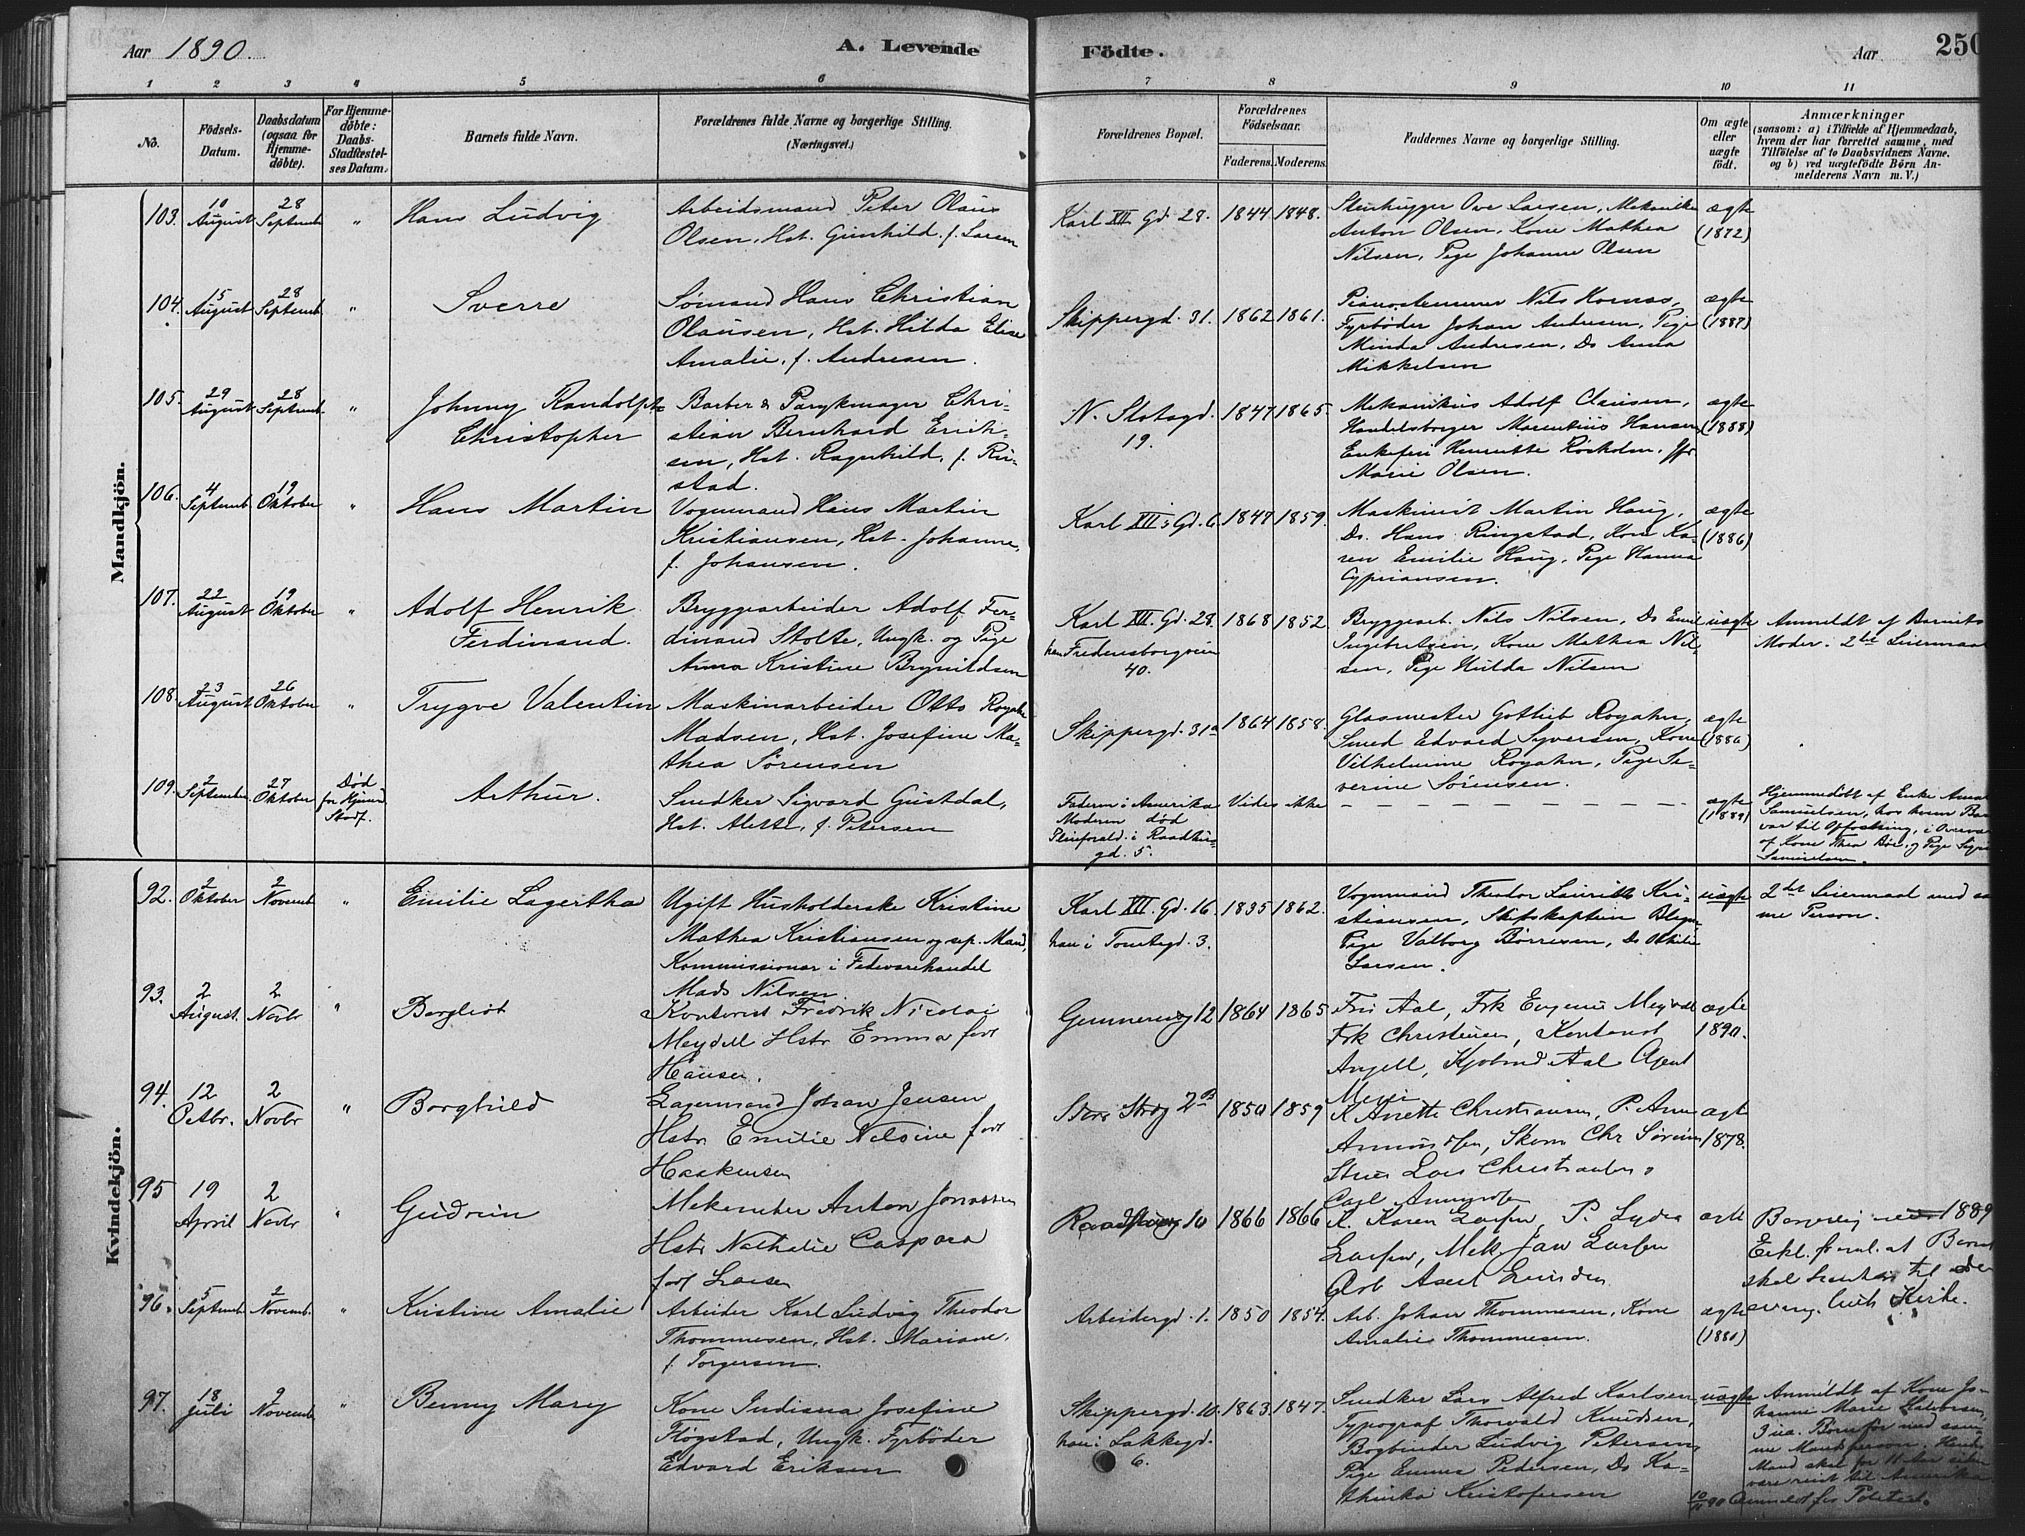 Aar 1890.
A. Levende
Födte.
Aar
250
1 2 3 4 5 6 7 8 9 10 11
No.
Födsels-
Datum.
Daabsdatum
(ogsaa for
Hjemme-
döbte).
For Hjemme-
döbte:
Daabs-
Stadfæstel-
ses Datum.
Barnets fulde Navn.
Forældrenes fulde Navne og borgerlige Stilling.
(Næringsvei.)
Forældrenes Bopæl.
Forældrenes
Födselsaar.
Faderens. Moderens.
Faddernes Navne og borgerlige Stilling.
Om ægte
eller
uægte
födt.
Anmærkninger
(saasom: a) i Tilfælde af Hjemmedaab,
hvem der har forrettet samme, med
Tilföielse af to Daabsvidners Navne.
og b) ved uægtefödte Börn An-
melderens Navn m. V.)
Mandkjön.
103. 10 August 28 Septemb " Hans Ludvig
Arbeidsmand Peter Olaus
Olsen, Hst. Gunhild f. Larsen
Karl XII Gd. 28. 1844 1848.
Ove Larsen, Mekaniker
Anton Olsen, Kone Mathea
Nilsen, Pige Johanne Olsen
ægte
(1872)
104. 15 August 28 Septemb " Sverre
Sømand Hans Christian
Olausen, Hst. Hilda Elise
Amalie, f. Andresen.
Skippergd. 31. 1862 1861.
Pianostemmer Nils Kornæs,
Fyrbøder Johan Andresen, Pige
Minda Andresen, Do Anna
Mikkelsen
ægte
(1887)
105. 29 August 28 Septemb " Johnny Randolph
Christopher
Barber & Parykmager Chri-
stian Bernhard Erich-
sen, Hst. Ragnhild, f. Ru-
stad.
N. Slotsgd.
19.
1847 1865.
Mekanikus Adolf Clausen,
Handelsborger Marentius Hansen
Enkefru Henriette Roskolm, Jfr
Marie Olsen.
ægte
(1888)
106. 4 Septemb 19 Oktober " Hans Martin
Vognmand Hans Martin
Kristiansen, Hst. Johanne,
f. Johansen.
Karl XII's Gd. 6 1847 1859.
Maskinist Martin Haug,
Do. Hans Ringstad, Kone Ka-
ren Emilie Haug, Pige Hanna
Cyprianssen.
ægte
(1886)
107. 22 August 19 Oktober " Adolf Henrik
Ferdinand.
Bryggearbeider Adolf Fer-
dinand Stolte, Ungk. og Pige
Anna Kristine Brynildsen
Karl XII. Gd. 28.
han Fredensborgveien
40.
1868 1852
Bryggearb. Nils Nilsen, Do Emil
Ingebretsen, Kone Mathea Nil-
sen, Pige Hulda Nilsen
uægte
Anmeldt af Barnets
Moder. 2det Leiermaal
108 23 August 26 Oktober " Trygve Valentin
Maskinarbeider Otto Rogahn
Madsen, Hst. Josefine Ma-
thea Sørensen
Skippergd. 31a 1864 1858.
Glasmester Gotlieb Rogahn,
Smed Edvard Syversen, Kone
Vilhelmine Rogahn, Pige Se-
verine Sørensen.
ægte
(1886)
109. 2 September 27 Oktober
Død
før Hjemmed.
Stadf.
Arthur.
Snedker Sigvard Gustdal,
Hst. Alette, f. Petersen
Faderen i Amerika
Moderen død
Pleieforæld. i Raadhus-
gd. 5.
Vides ikke
ægte
(1889)
Hjemmedøbt af Enke
Samuelsen, hos hvem Bar
var til Opfostring, i Overvær
af Kone Thea og Pige
Samuelsen.
Kvindekjön.
92. 2 Oktober 2 Novemb " Emilie Lagertha
Ugift Husholderske Kristine
Mathea Kristiansen og sep. Mand,
Kommissionær i Fedevarehandel
Mads Nilsen.
Karl XII. Gd. 16.
han i Tomtegd. 3.
1835 1862.
Vognmand Theodor Lauritz Kri-
stiansen, Skibskaptein
Pige Valborg Børresen, Do Othilie
Larsen.
uægte
2det Leiermaal med sa
me Person.
93. 2 August. 2 Novbr " Bergliot
Kontorist Fredrik Nicolai
Meydell Hstr Emma født
Hansen.
1864 1865
Fru Aal, Frk Eugenie Meydell
Frk Christensen, Kontorist
Angell, Kjøbmd Aal Agent
Meyer
ægte
1890.
94. 12 Octbr. 2 Novbr " Borghild
Lagermand Johan Jensen
Hstr Emilie Nilsine født
Haakensen
Store Strdg 2B 1850 1859
K Anette Christiansen, P. Anna
Amundsen, Skom Chr Sørensen
Lars Christiansen
Carl Amundsen
ægt
1878.
95 19 April 2 Novbr " Gudrun
Mekaniker Anton Jonassen
Hstr Nathalie Caspara
født Larsen
10 1866 1866
K. Karen Larsen, P. Lydia
Larsen, Mek Jan Larsen
Arb Axel
ægt
Borgerlig 1889
Erkl. at Barnet
skal til den
evang. luth Kirke.
96. 5 Septemb 2 Novemb. " Kristine Amalie
Arbeider Karl Ludvig Theodor
Thommesen, Hst. Mariane
f. Torgersen.
Arbeidergd. 1. 1850 1854.
Arb. Johan Thommesen, Kone
Amalie Thommesen.
ægte
(1880)
97. 18 Juli 2 Novembr " Benny Mary
Kone Indiana Josefine
Fløgstad, Ungk. Fyrbøder
Edvard Eriksen
Skippergd. 10.
han i Lakkegd.
6.
1863. 1847.
Snedker Lars Alfred Karlsen,
Typograf Thorvald Knudsen,
Bogbinder Ludvig Petersen,
Pige Emma Pedersen, Do Ka-
thinka Kristofersen
uægte
Anmeldt af Kone Jo-
hanne Marie Halvorsen,
3 ua. Børn før med sam-
me Mandsperson. Hendes
Mand skal for 11 Aar siden
være reist til Amerika.
10/11 90 Anmeldt for Politiet.